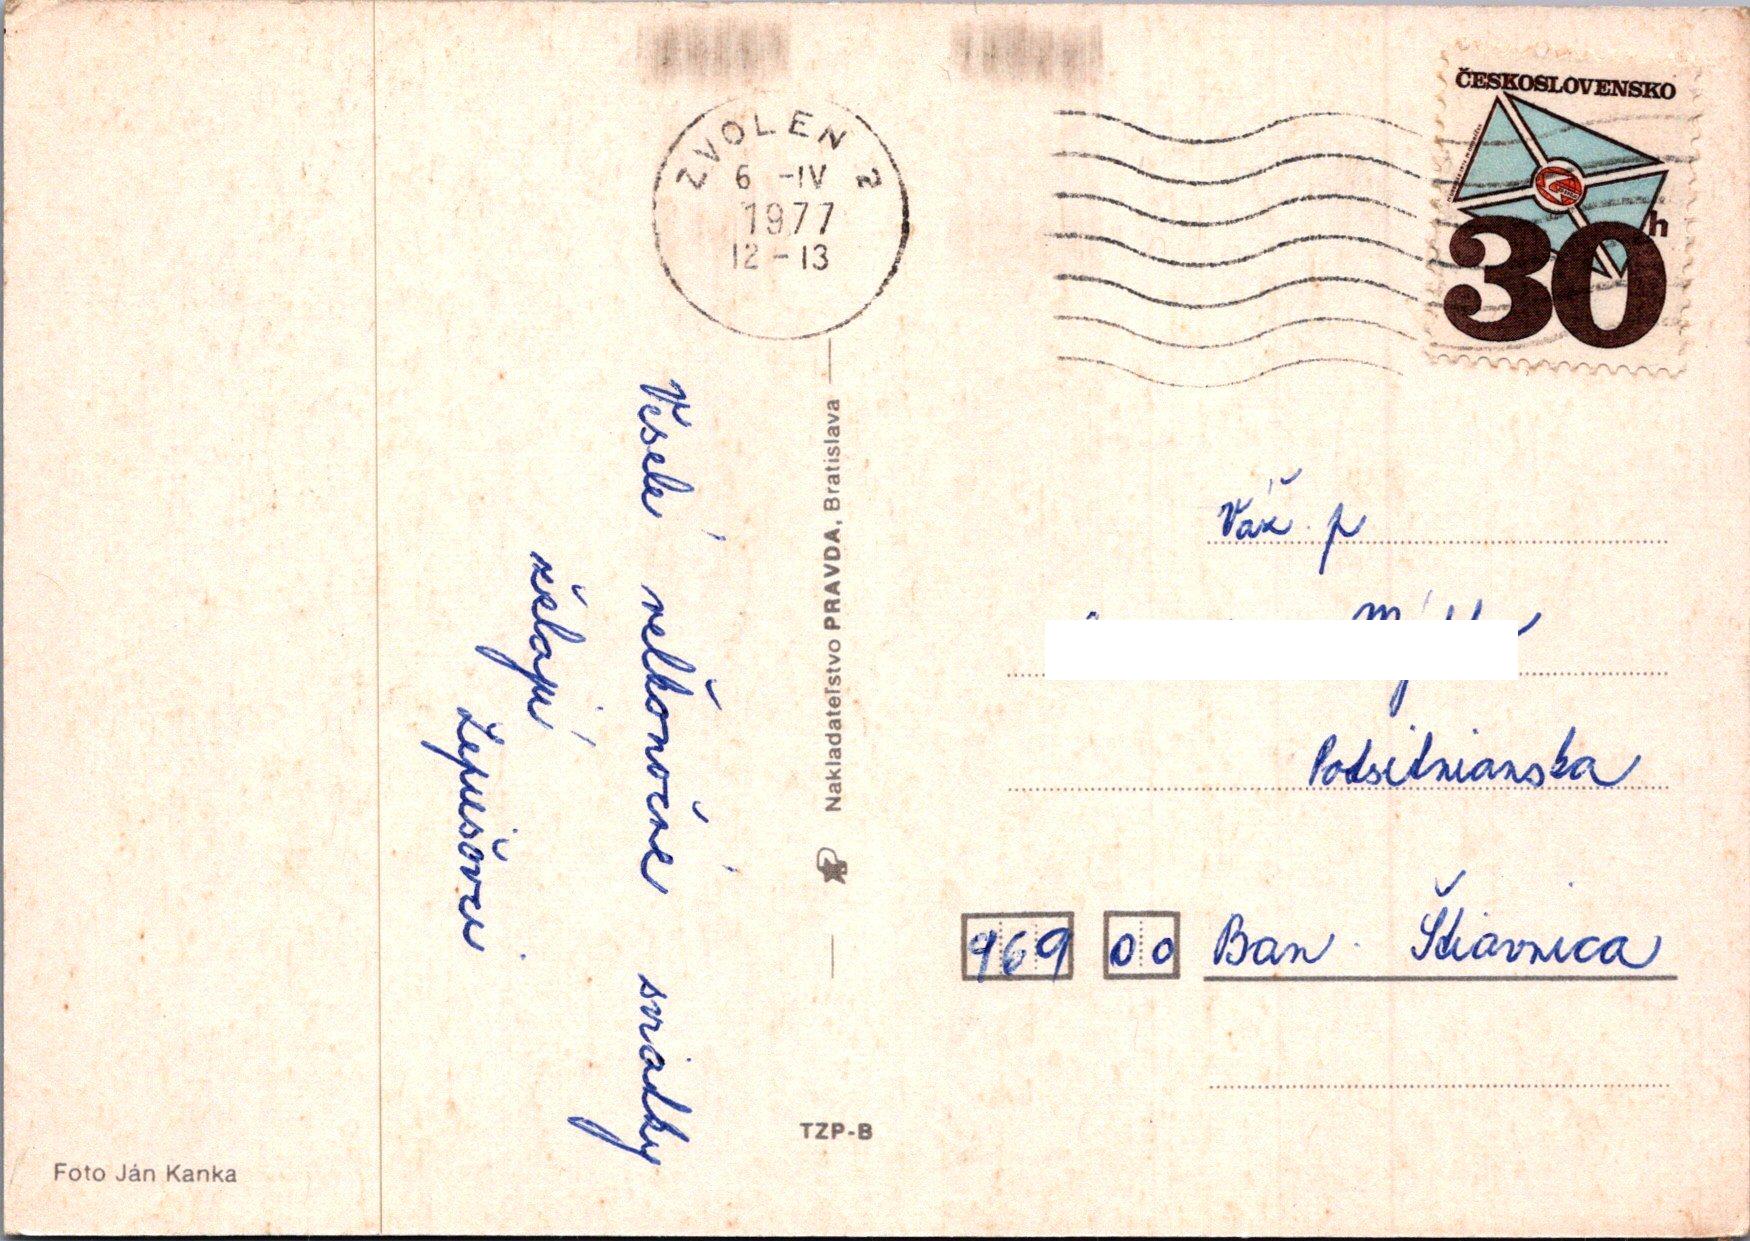 ČESKOSLOVENSKO
30 h
ZVOLEN 2
6 -IV
1977
12 - 13
Veselé veľkonočné sviatky
želajú
Lepušovci
Nakladateľstvo PRAVDA, Bratislava
Váž. p
Podsitnianska
969 00 Ban. Štiavnica
TZP-B
Foto Ján Kanka